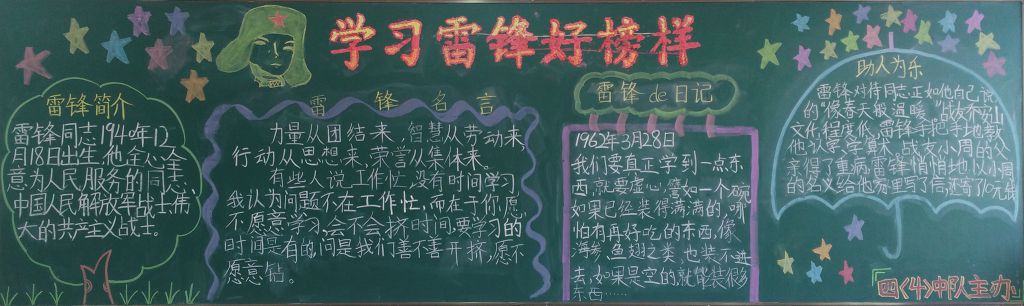 学习雷锋好榜样
雷锋简介
雷锋同志1940年12
月18日出生,他全心全
意为人民服务的同志、
中国人民解放军战士、伟
大的共产主义战士。
雷锋名言
力量从团结来,智慧从劳动来,
行动从思想来,荣誉从集体来。
有些人说工作忙、没有时间学习,
我认为问题不在工作忙,而在于你愿
不愿意学习,会不会挤时间。要学习的
时间是有的,问是我们善不善于挤,愿不
愿意钻。
雷锋de日记
1962年3月28日
我们要真正学到一点东
西,就要虚心。譬如一个碗,
如果已经装得满满的,哪
怕有再好吃的东西,像
海参、鱼翅之类,也装不进
去,如果是空的,就能装很多
东西……
助人为乐
雷锋对待同志正如他自己说
的"像春天般温暖。"战友乔安山
文化程度低,雷锋手把手地教
他认字、学算术。战友小周的父
亲得了重病,雷锋悄悄地以小周
的名义给他家里写了信,还寄了10元钱
四(4)中队主办